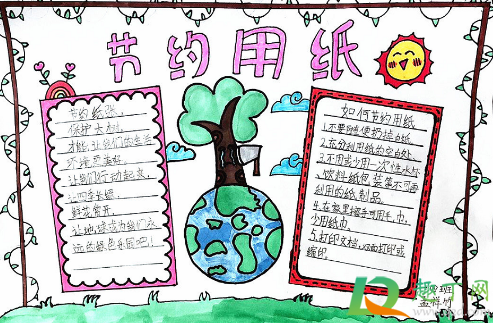 节约用纸
节约纸张,
保护大树,
才能让我们的生活
环境更美好。
让我们行动起来,
让四季长绿,
鲜花常开,
让地球成为我们永
远的绿色乐园吧!
如何节约用纸
1.不要随便扔掉白纸
2.充分利用纸的空白处.
3.不用或少用一次性水杯
、饮料纸包装等不可再
利用的纸制品。
4.在家里擦手可用手巾,
少用纸巾。
5.打印文档,双面打印或
缩印
班